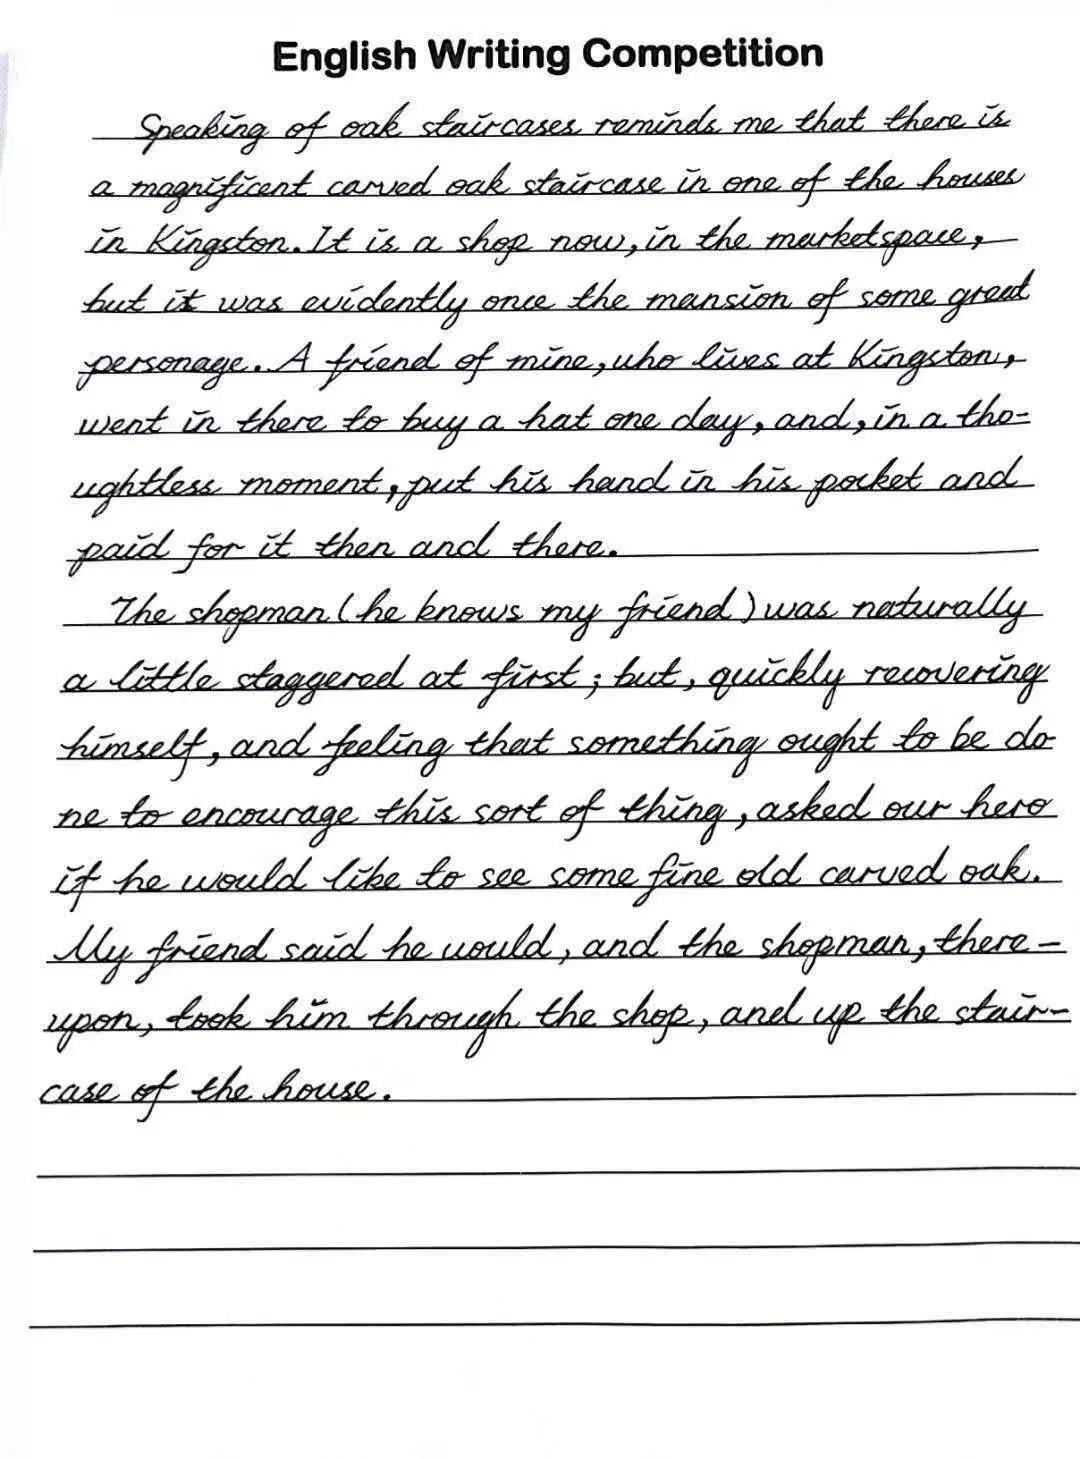 English Writing Competition
Speaking of oak staircases reminds me that there is
a magnificent carved oak staircase in one of the houses
in Kingston. It is a shop now, in the marketspace,
but it was evidently once the mansion of some great
personage. A friend of mine, who lives at Kingston,
went in there to buy a hat one day, and, in a tho-
ughtless moment, put his hand in his pocket and
paid for it then and there.
The shopman (he knows my friend) was naturally
a little staggered at first; but, quickly recovering
himself, and feeling that something ought to be do
ne to encourage this sort of thing, asked our hero
if he would like to see some fine old carved oak.
My friend said he would, and the shopman, there-
upon, took him through the shop, and up the stair-
case of the house.